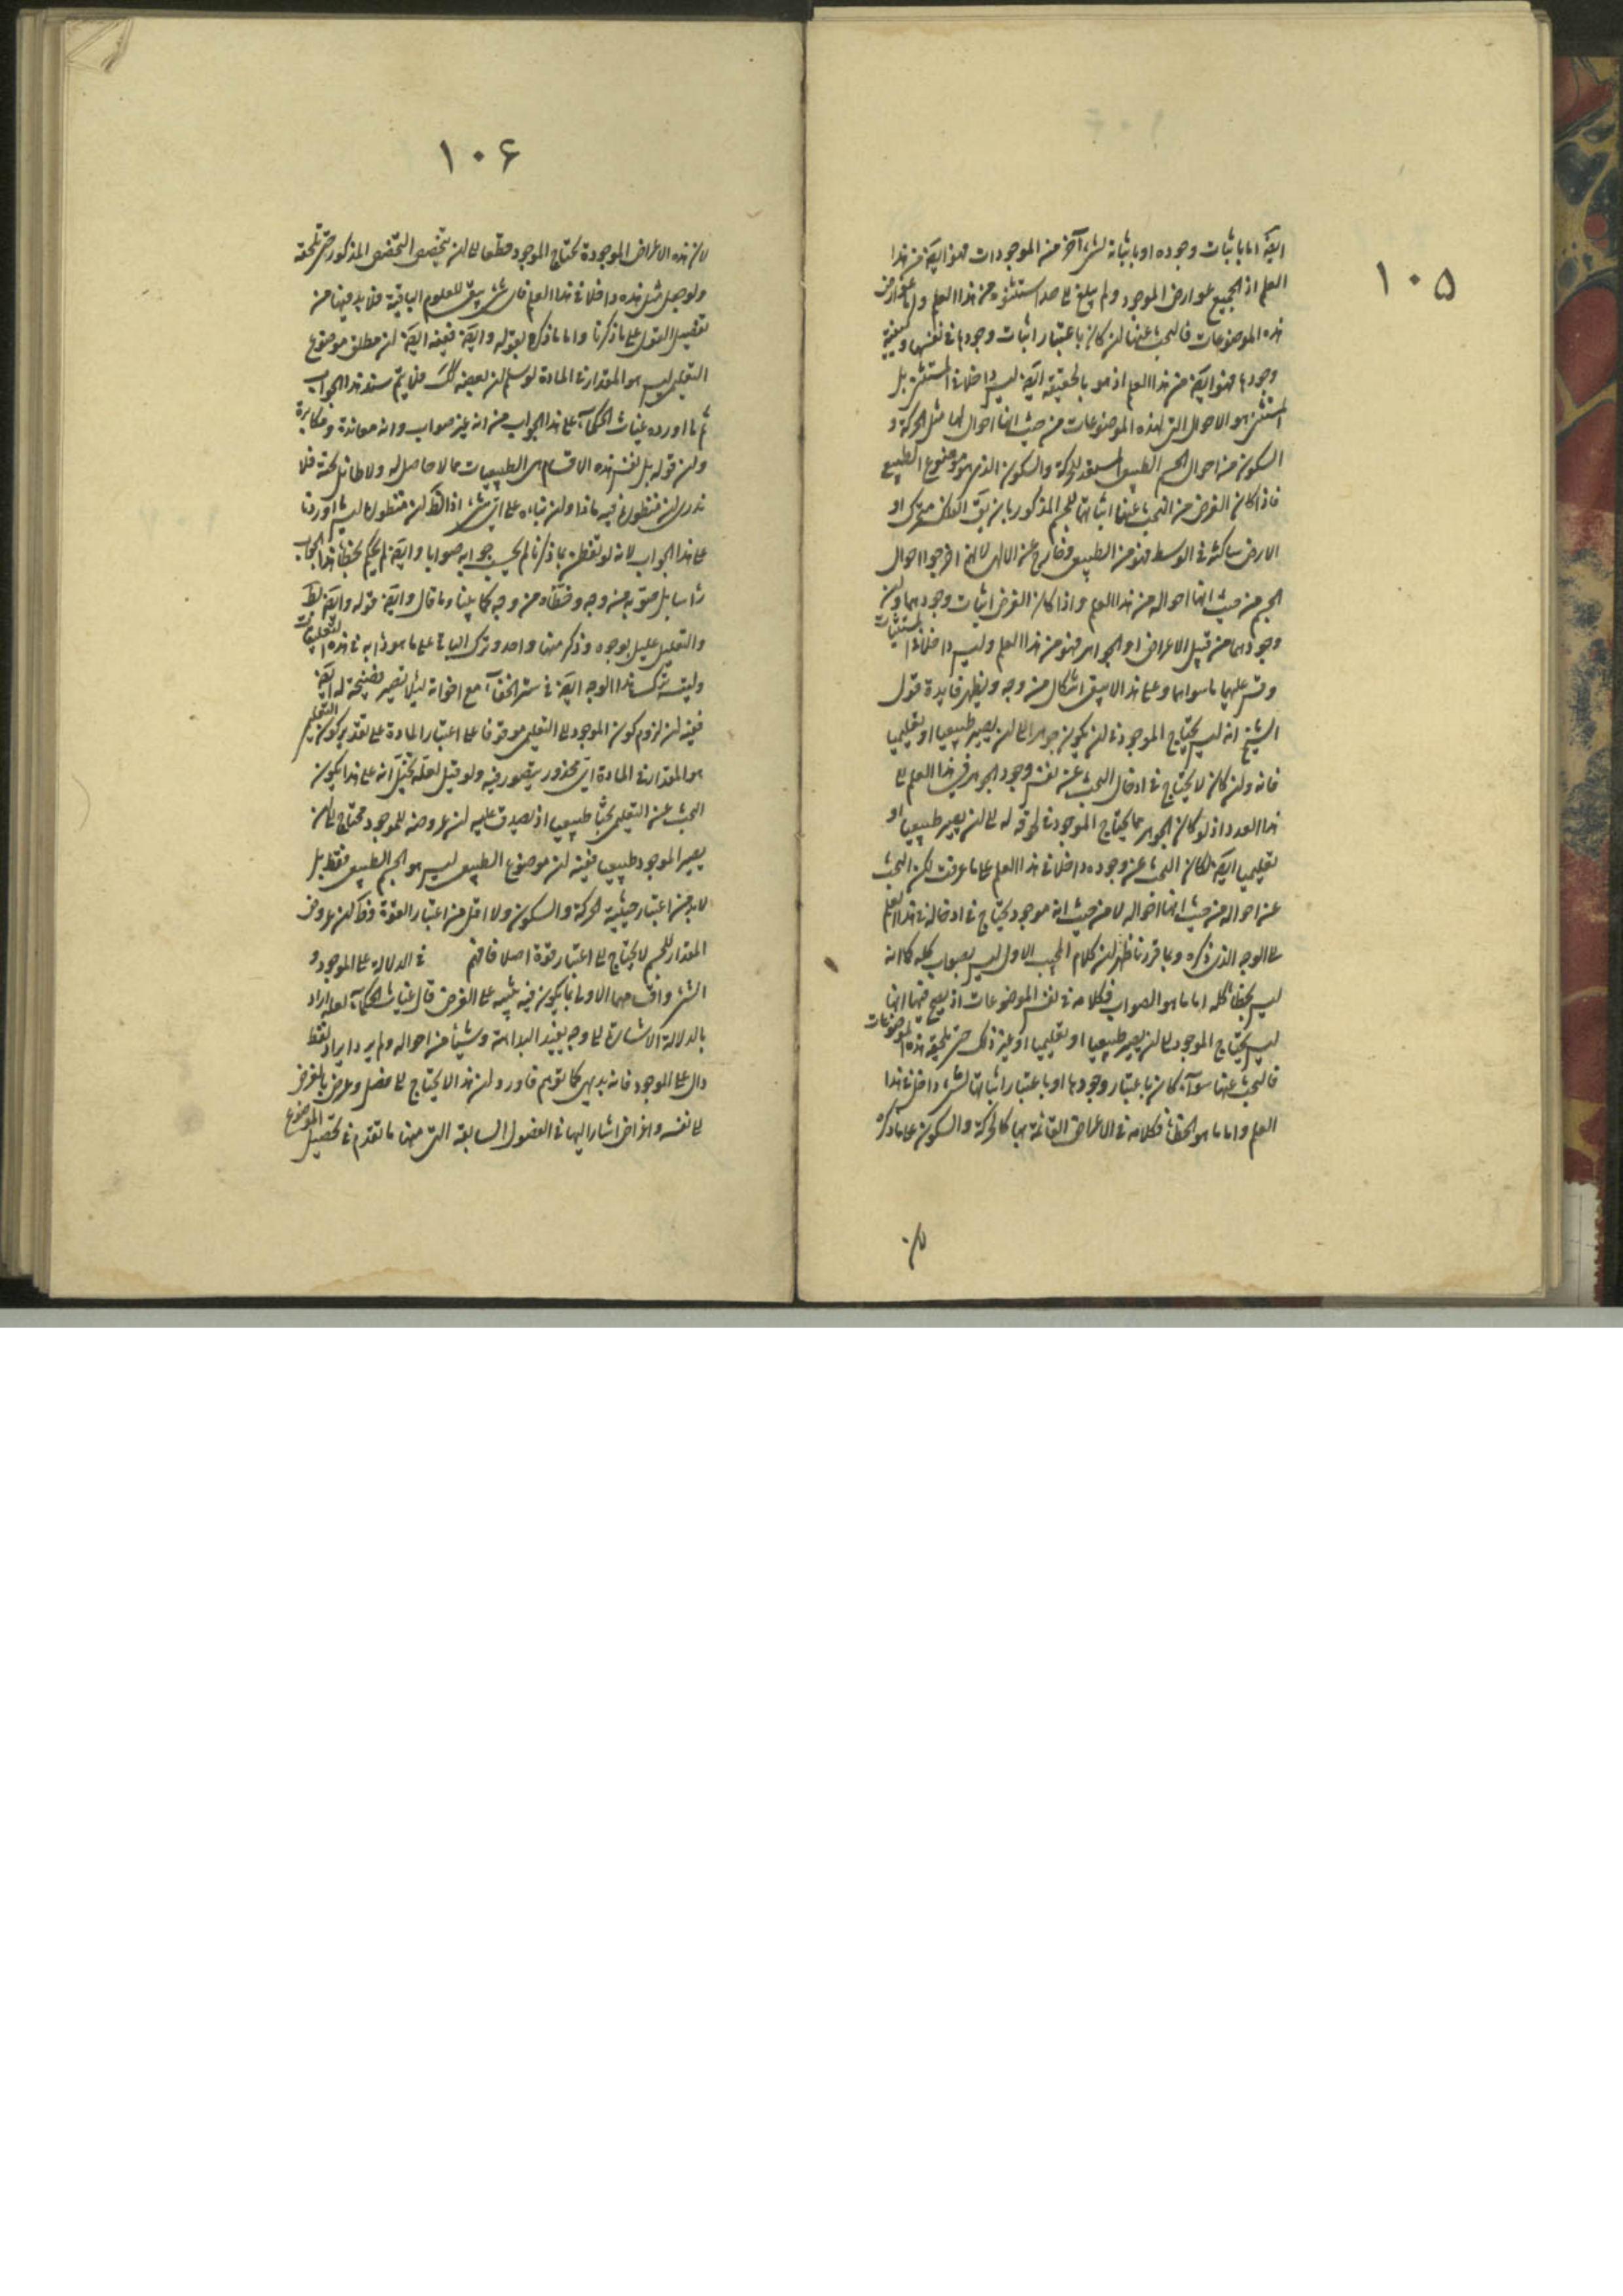 ١٠٥
ايضا اما باثبات وجوده او باثباته لشىء آخر من الموجودات فهو ايضا من هذا
العلم اذ الجميع عوارض الموجود ولم يبلغ الى حد استثنوه من هذا العلم واما عوارض
هذه الموضوعات فالبحث عنها ان كان باعتبار اثبات وجودها فى نفسها وكيفية
وجودها فهو ايضا من هذا العلم اذ هو بالحقيقة ايضا ليس داخلا فى المستثنى بل
المستثنى هو الاحوال التى لهذه الموضوعات من حيث انها احوال لها مثل الحركة و
السكون من احوال الجسم الطبيعى المستعد للحركة والسكون الذى هو موضوع الطبيعى
فاذا كان الغرض من البحث عنها اثباتها للجسم المذكور بان يق الفلك متحرك او
الارض ساكنة فى الوسط فهو من الطبيعى وخارج عن الالهى لانهم اخرجوا احوال
الجسم من حيث انها احواله من هذا العلم واذا كان الغرض اثبات وجودهما وان
وجودهما من قبيل الاعراض او الجواهر فهو من هذا العلم وليس داخلا فى المستثنيات
وقس عليهما ما سواهما وعلى هذا لا يبقى اشكال من وجه ويظهر فايدة قول
الشيخ انه ليس يحتاج الموجود فى ان يكون جوهرا الى ان يصير طبيعيا او تعليميا
فانه وان كان لا يحتاج فى ادخال البحث عن نفس وجود الجوهر فى هذا العلم الى
هذا العدد اذ لو كان الجوهر مما يحتاج الموجود فى لحوقه له الى ان يصير طبيعيا او
تعليميا ايضا لكان البحث عن وجوده داخلا فى هذا العلم على ما عرفت لكن البحث
عن احواله من حيث انها احواله لا من حيث انه موجود يحتاج فى ادخاله فى هذا العلم
الى الوجه الذى ذكره وبما قررنا ظهر ان كلام المجيب الاول ليس بصواب كله كما انه
ليس بخطأ كله اما ما هو الصواب فكلامه فى نفس الموضوعات اذ يصح فيها انها
ليس يحتاج الموجود الى ان يصير طبيعيا او تعليميا او غير ذلك حتى تلحقه هذه الموضوعات
فالبحث عنها سوآء كان باعتبار وجودها او باعتبار اثباتها لشىء داخل فى هذا
العلم واما ما هو الخطأ فكلامه فى الاعراض القائمة بها كالحركة والسكون على ما ذكره
١٠۶
لان هذه الاعراض الموجودة يحتاج الموجود قطعا الى ان يتخصص التخصص المذكور حتى تلحقه
ولو جعل مثل هذه داخلا فى هذا العلم فاى شىء يبقى للعلوم الباقية فلا بد فيها من
تفصيل القول على ما ذكرنا واما ما ذكره بقوله وايضا ففيه ايضا ان مطلق موضوع
التعليمى ليس هو المقدار فى المادة لو سلم ان بعضه كك فلا يتم سند هذا الجواب
ثم ما اورده غياث الحكمآء على هذا الجواب من انه غير صواب وانه معاندة ومكابرة
وان قوله بل نفس هذه الاقسام هى الطبيعيات مما لا حاصل له ولا طائل تحته فلا
ندرى ان منظوره فيه ماذا وان بناءه على اى شىء اذ الظ ان منظوره ليس ما اوردنا
على هذا الجواب لانه لو تفطن بما ذكرنا لم يحسب جوابه صوابا وايضا لم يحكم بخطأ هذا الجواب
رأسا بل صوبه من وجه وخطأه من وجه كما بينا وما قال وايضا قوله وايضا
والتعليل عليل بوجوه وذكر منها واحد وترك الباقى على ما هو دأبه فى هذه التعليقات
وليته ترك هذا الوجه ايضا فى ستر الخفآء مع اخوانه لئلا يصير فضيحة له ايضا
ففيه ان لزوم كون الموجود الى التعليمى موقوفا على اعتبار المادة على تقدير كون التعليمى
هو المقدار فى المادة اى محذور يتصور فيه ولو قيل لعله تخيل انه على هذا يكون
البحث عن التعليمى بحثا طبيعيا اذ يصدق عليه ان عروضه للموجود محتاج الى ان
يصير الموجود طبيعيا ففيه ان موضوع الطبيعى ليس هو الجسم الطبيعى فقط بل
لا بد من اعتبار حيثية الحركة والسكون ولا اقل من اعتبار القوة وظ ان عروض
المقدار للجسم لا يحتاج الى اعتبار قوة اصلا فافهم فى الدلالة على الموجود و
الشىء واقسامهما الاول بما يكون فيه تنبيه على الغرض قال غياث الحكمآء لعله اراد
بالدلالة الاشارة الى وجه يفيد البداهة وشيأ من احواله ولم يرد ايراد لفظ
دال على الموجود فانه بديهى كما توهم فاورد ان هذا لا يحتاج الى فصل وعرض بالغرض
الى نفسه واغراض اشار اليها فى الفصول السابقة التى منها ما تقدم فى تحصيل الموضوع